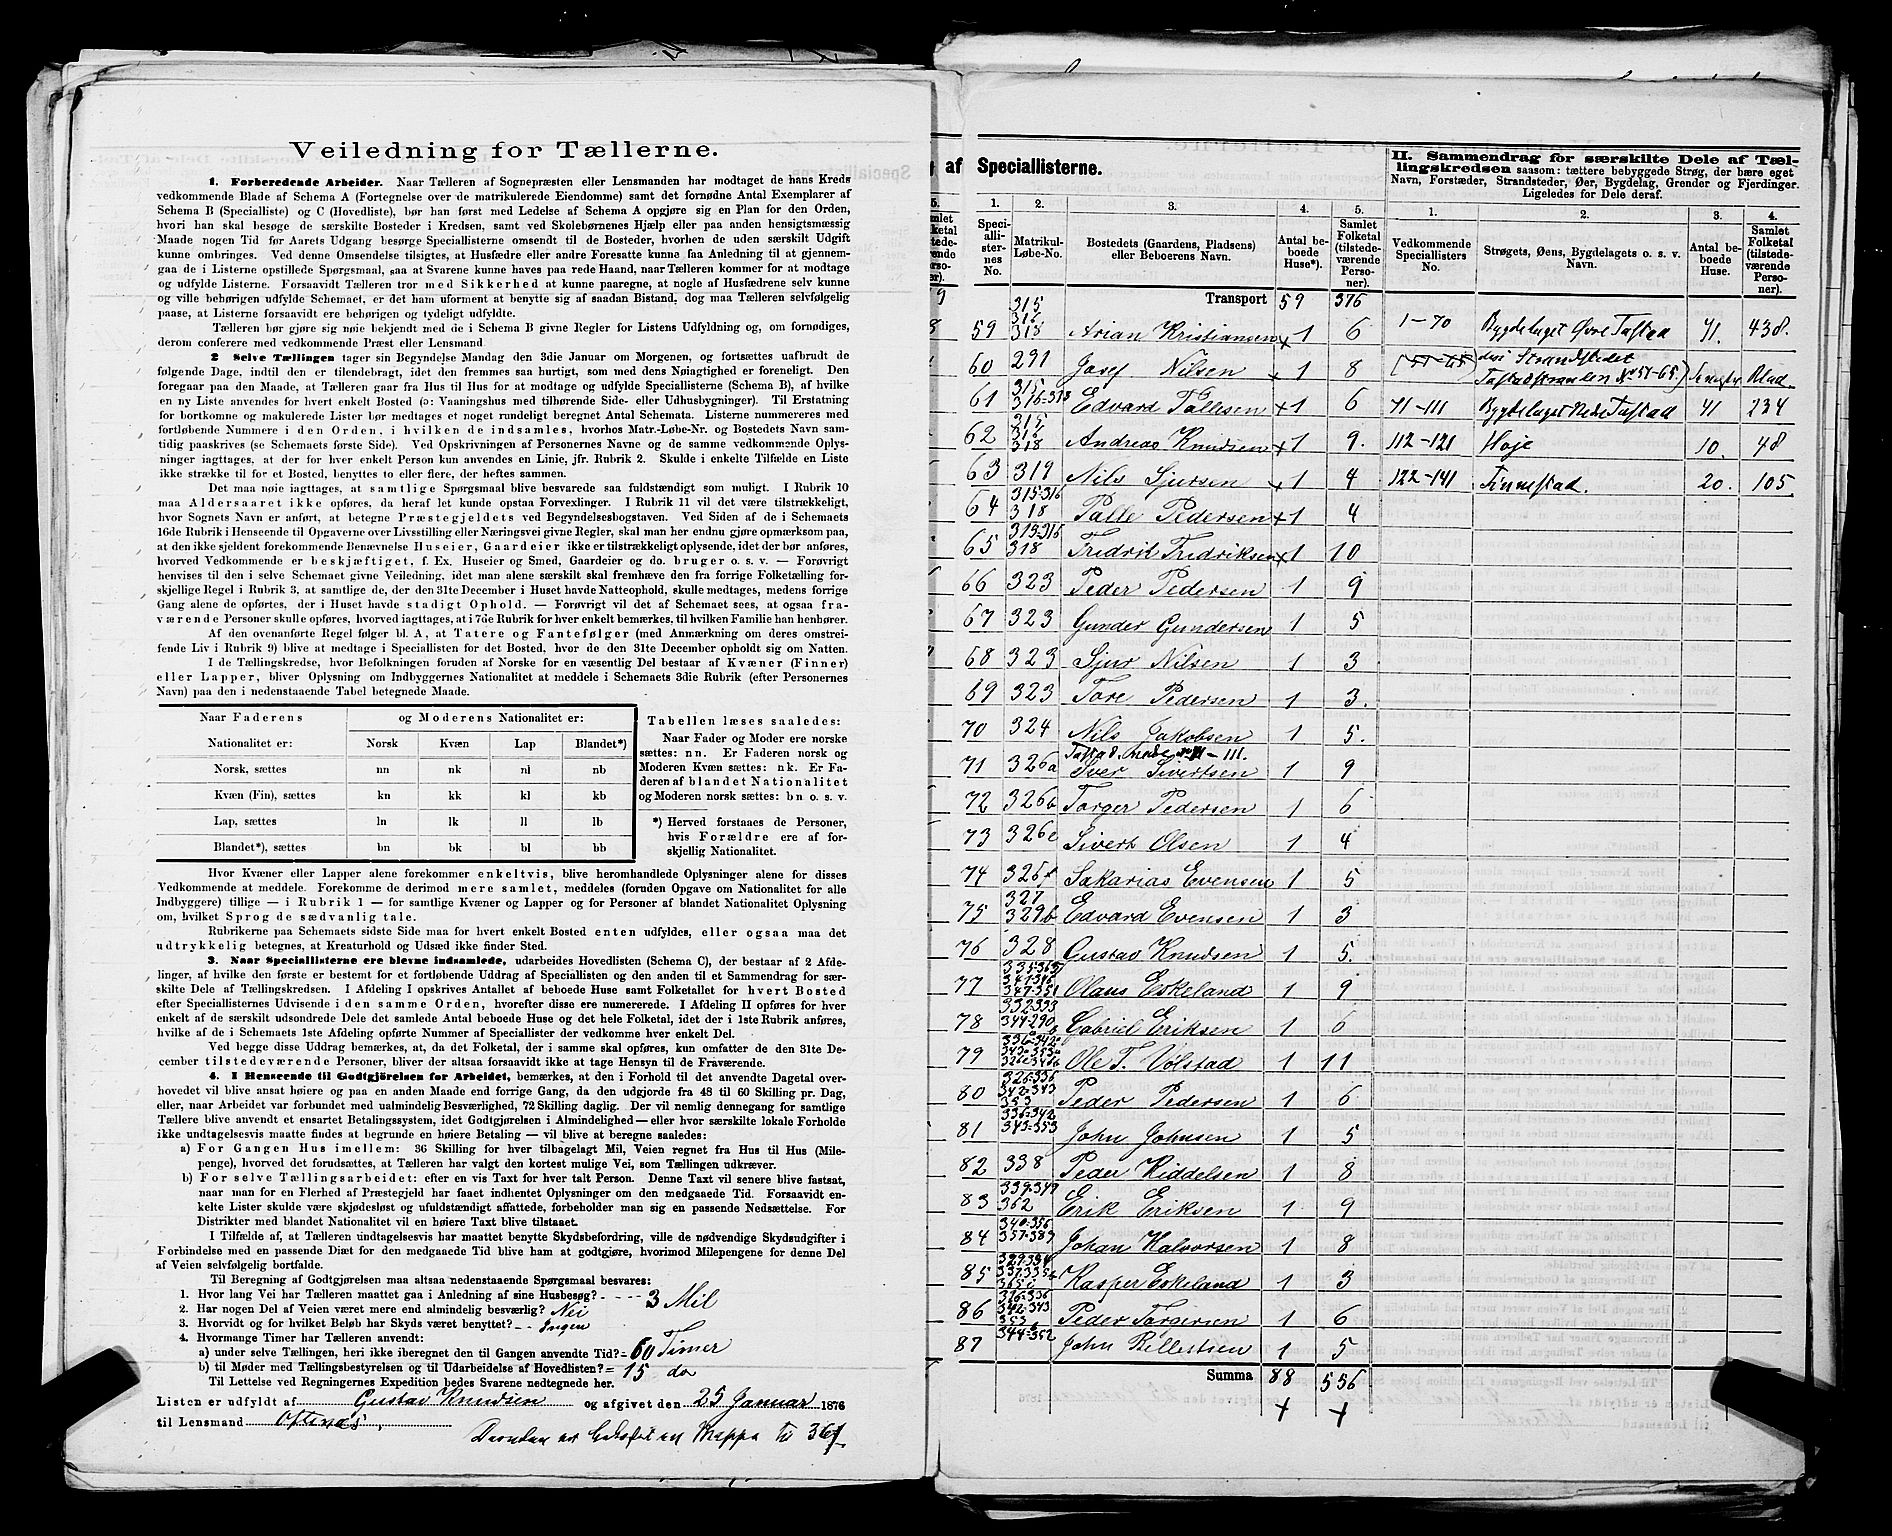 Veiledning for Tællerne.
1. Forberedende Arbeider. Naar Tælleren af Sognepræsten eller Lensmanden har modtaget de hans Kreds
vedkommende Blade af Schema A (Fortegnelse over de matrikulerede Eiendomme) samt det fornødne Antal Exemplarer af
Schema B (Specialliste) og C (Hovedliste), bør han først med Ledelse af Schema A opgjøre sig en Plan for den Orden,
hvori han skal besøge de særskilte Bosteder i Kredsen, samt ved Skolebørnenes Hjælp eller paa anden hensigtsmæssig
Maade nogen Tid før Aarets Udgang besørge Speciallisterne omsendt til de Bosteder, hvorhen de uden særskilt Udgift
kunne ombringes. Ved denne Omsendelse tilsigtes, at Husfædre eller andre Foresatte kunne faa Anledning til at gjennem-
gaa de i Listerne opstillede Spørgsmaal, saa at Svarene kunne haves paa rede Haand, naar Tælleren kommer for at modtage
og udfylde Listerne. Forsaavidt Tælleren tror med Sikkerhed at kunne paaregne, at nogle af Husfædrene selv kunne
og ville behørigen udfylde Schemaet, er det ham uforment at benytte sig af saadan Bistand, dog maa Tælleren selvfølgelig
paase, at Listerne forsaavidt ere behørigen og tydeligt udfyldte.
Tælleren bør gjøre sig nøie bekjendt med de i Schema B givne Regler for Listens Udfyldning og, om fornødiges,
derom conferere med vedkommende Præst eller Lensmand
2 Selve Tællingen tager sin Begyndelse Mandag den 3die Januar om Morgenen, og fortsættes uafbrudt de
følgende Dage, indtil den er tilendebragt, idet den fremmes saa hurtigt, som med dens Nøiagtighed er foreneligt. Den
foregaar paa den Maade, at Tælleren gaar fra Hus til Hus for at modtage og udfylde Speciallisterne (Schema B), af hvilke
en ny Liste anvendes for hvert enkelt Bosted (ɔ: Vaaningshus med tilhørende Side- eller Udhusbygninger). Til Erstatning
for bortkomne og makulerede Lister bør medtages et noget rundeligt beregnet Antal Schemata. Listerne nummereres med
fortløbende Nummere i den Orden, i hvilken de indsamles, hvorhos Matr.-Løbe-Nr. og Bostedets Navn sam-
tidig paaskrives (se Schemaets første Side). Ved Opskrivningen af Personernes Navne og de samme vedkommende Oplys-
ninger iagttages, at der for hver enkelt Person kun anvendes en Linie, jfr. Rubrik 2. Skulde i enkelte Tilfælde en Liste
ikke strække til for et Bosted, benyttes to eller flere, der heftes sammen.
Det maa nøie iagttages, at samtlige Spørgsmaal blive besvarede saa fuldstændigt som muligt. I Rubrik 10
maa Aldersaaret ikke opføres, da heraf let kunde opstaa Forvexlinger. I Rubrik 11 vil det være tilstrækkeligt,
hvor Sognets Navn er anført, at betegne Præstegjeldets ved Begyndelsesbogstaven. Ved Siden af de i Schemaets
16de Rubrik i Henseende til Opgaverne over Livsstilling eller Næringsvei givne Regler, skal man her endnu gjøre opmærksom paa,
at den ikke sjeldent forekommende Benævnelse Huseier, Gaardeier ikke er tilstrækkeligt oplysende, idet der bør anføres,
hvorved Vedkommende er beskjæftiget, f. Ex. Huseier og Smed, Gaardeier og do. bruger o. s. v. — Forøvrigt
henvises til den i selve Schemaet givne Veiledning, idet man alene særskilt skal fremhæve den fra forrige Folketælling for-
skjellige Regel i Rubrik 3, at samtlige de, der den 31te December i Huset havde Natteophold, skulle medtages, medens forrige
Gang alene de opførtes, der i Huset havde stadigt Ophold. — Forøvrigt vil det af Schemaet sees, at ogsaa fra-
værende Personer skulle opføres, hvorved iagttages, at i 7de Rubrik for hver enkelt bemærkes, til hvilken Familie han henhører.
Af den ovenanførte Regel følger bl. A., at Tatere og Fantefølger (med Anmærkning om deres omstrei-
fende Liv i Rubrik 9) blive at medtage i Speciallisten for det Bosted, hvor de den 31te December opholdt sig om Natten.
I de Tællingskredse, hvor Befolkningen foruden af Norske for en væsentlig Del bestaar af Kvæner (Finner)
eller Lapper, bliver Oplysning om Indbyggernes Nationalitet at meddele i Schemaets 3die Rubrik (efter Personernes
Navn) paa den i nedenstaaende Tabel betegnede Maade.
Naar Faderens og Moderens Nationalitet er:
Nationalitet er: Norsk Kvæn Lap Blandet*)
Norsk, sættes nn nk nl nb
Kvæn (Fin), sættes kn kk kl kb
Lap, sættes ln lk ll lb
Blandet*), sættes bn bk bl bb
Tabellen læses saaledes:
Naar Fader og Moder ere norske
sættes: nn. Er Faderen norsk og
Moderen Kvæn sættes: nk. Er Fa-
deren af blandet Nationalitet
og Moderen norsk sættes: bn o. s. v.
*) Herved forstaaes de Personer,
hvis Forældre ere af for-
skjellig Nationalitet.
Hvor Kvæner eller Lapper alene forekommer enkeltvis, blive heromhandlede Oplysninger alene for disses
Vedkommende at meddele. Forekomme de derimod mere samlet, meddeles (foruden Opgave om Nationalitet for alle
Indbyggere) tillige — i Rubrik 1 — for samtlige Kvæner og Lapper og for Personer af blandet Nationalitet Oplysning
om, hvilket Sprog de sædvanlig tale.
Rubrikerne paa Schemaets sidste Side maa for hvert enkelt Bosted enten udfyldes, eller ogsaa maa det
udtrykkelig betegnes, at Kreaturhold og Udsæd ikke finder Sted.
3. Naar Speciallisterne ere blevne indsamlede, udarbeides Hovedlisten (Schema C), der bestaar af 2 Afde-
linger, af hvilke den første er bestemt for et fortløbende Uddrag af Speciallisten og den anden til et Sammendrag for sær-
skilte Dele af Tællingskredsen. I Afdeling I opskrives Antallet af beboede Huse samt Folketallet for hvert Bosted
efter Speciallisternes Udvisende i den samme Orden, hvorefter disse ere numererede. I Afdeling II opføres for hver
enkelt af de særskilt udsondrede Dele det samlede Antal beboede Huse og det hele Folketal, idet der i 1ste Rubrik anføres,
hvilke af de i Schemaets 1ste Afdeling opførte Nummer af Speciallister der vedkomme hver enkelt Del.
Ved begge disse Uddrag bemærkes, at, da det Folketal, der i samme skal opføres, kun omfatter de den 31te De-
cember tilstedeværende Personer, bliver der altsaa forsaavidt ikke at tage Hensyn til de Fraværende.
4. I Henseende til Godtgjörelsen for Arbeidet, bemærkes, at den i Forhold til det anvendte Dagetal over-
hovedet vil blive ansat høiere og paa en anden Maade end forrige Gang, da den udgjorde fra 48 til 60 Skilling pr. Dag,
eller, naar Arbeidet var forbundet med ualmindelig Besværlighed, 72 Skilling daglig. Der vil nemlig dennegang for samtlige
Tællere blive anvendt et ensartet Betalingssystem, idet Godtgjørelsen i Almindelighed — eller hvor særskilte lokale Forholde
ikke undtagelsesvis maatte findes at begrunde en høiere Betaling — vil blive at beregne saaledes:
a) For Gangen Hus imellem: 36 Skilling for hver tilbagelagt Mil, Veien regnet fra Hus til Hus (Mile-
penge), hvorved det forudsættes, at Tælleren har valgt den kortest mulige Vei, som Tællingen udkræver.
b) For selve Tællingsarbeidet: efter en vis Taxt for hver talt Person. Denne Taxt vil senere blive fastsat,
naar man for en Flerhed af Præstegjeld har faaet indhentet Oplysninger om den medgaaede Tid. Forsaavidt en-
kelte Lister skulde være skjødesløst og ufuldstændigt affattede, forbeholder man sig en passende Nedsættelse. For
Distrikter med blandet Nationalitet vil en høiere Taxt blive tilstaaet.
I Tilfælde af, at Tælleren undtagelsesvis har maattet benytte Skydsbefordring, ville de nødvendige Skydsudgifter i
Forbindelse med en passende Diæt for den medgaaede Tid blive ham at godtgjøre, hvorimod Milepengene for denne Del
af Veien selvfølgelig bortfalde.
Til Beregning af Godtgjørelsen maa altsaa nedenstaaende Spørgsmaal besvares:
1. Hvor lang Vei har Tælleren maattet gaa i Anledning af sine Husbesøg? 3 Mil
2. Har nogen Del af Veien været mere end almindelig besværlig? Nei
3. Hvorvidt og for hvilket Beløb har Skyds været benyttet? Ingen
4. Hvormange Timer har Tælleren anvendt:
a) under selve Tællingen, heri ikke iberegnet den til Gangen anvendte Tid? = 60 Timer
b) til Møder med Tællingsbestyrelsen og til Udarbeidelse af Hovedlisten? = 15 do
Til Lettelse ved Regningernes Expedition bedes Svarene nedtegnede her.
Listen er udfyldt af Gustav Knudsen og afgivet den 25 Januar 1876
til Lensmand Oftenæs,
g af Speciallisterne.
II. Sammendrag for særskilte Dele af Tæl-
lingskredsen saasom: tættere bebyggede Strøg, der bære eget
Navn, Forstæder, Strandsteder, Øer, Bygdelag, Grender og Fjerdinger.
Ligeledes for Dele deraf.
1. 2. 3. 4. 5. 1. 2. 3. 4.
Speci-
allis-
ternes
No. Matrikul-
Løbe-No. Bostedets (Gaardens, Pladsens)
eller Beboerens Navn. Antal be-
boede
Huse*). Samlet
Folketal
(tilstede-
værende
Perso-
ner). Vedkommende
Speciallisters
No. Strøgets, Øens, Bygdelagets o. s. v.
Navn. Antal be-
boede
Huse. Samlet
Folketal
(tilstede-
værende
Perso-
ner).
Transport 59 376
59 315 316 318 Arian Kristiansen x 1 6 1-70 Bygdelaget Øvre Tastad 71. 438.
60 291 Josef Nilsen x 1 8 (51-65) des Strandstedet
Tastadstranden No 51-65.)
61 315 316-318 Edvard Tollesen x 1 6 71-111 Bygdelaget Nedre Tastad 41 234
62 315 316 318 Andreas Knudsen x 1 9. 112-121 Høje 10. 48
63 319 Nils Sjursen x 1 4 122-141 Finnestad. 20. 105
64 315-316 318 Palle Pedersen x 1 4
65 315-316 318 Fredrik Fredriksen x 1 10
66 323 Peder Pedersen 1 9
67 323 Gunder Gundersen 1 5
68 323 Sjur Nilsen 1 3
69 323 Tore Pedersen 1 3.
70 324 Nils Jakobsen 1 5.
Tastad nedre No 71-111.
71 326a Iver Sivertsen 1 9
72 326b Torger Pedersen 1 6
73 326e Sivert Olsen 1 4
74 326f Sakarias Evensen 1 5
75 327 329b Edvard Evensen 1 3
76 328 Gustav Knudsen 1 5.
77 Olaus Eskeland 1 9
78 Gabriel Eriksen 1 6
79 Ole T. Volstad 1 11
80 326-336 342-343 353 Peder Pedersen 1 6
81 336-342 343-353 John Johnsen 1 5
82 338 Peder Kiddelsen 1 8
83 339-347 362 Erik Eriksen 1 9
84 340-356 357-389 Johan Halvorsen 1 8
85 Kasper Eskeland 1 3
86 326-336 342-343 353 Peder Torgersen 1 6
87 344-352 John Rellestien 1 5
Summa 88 556